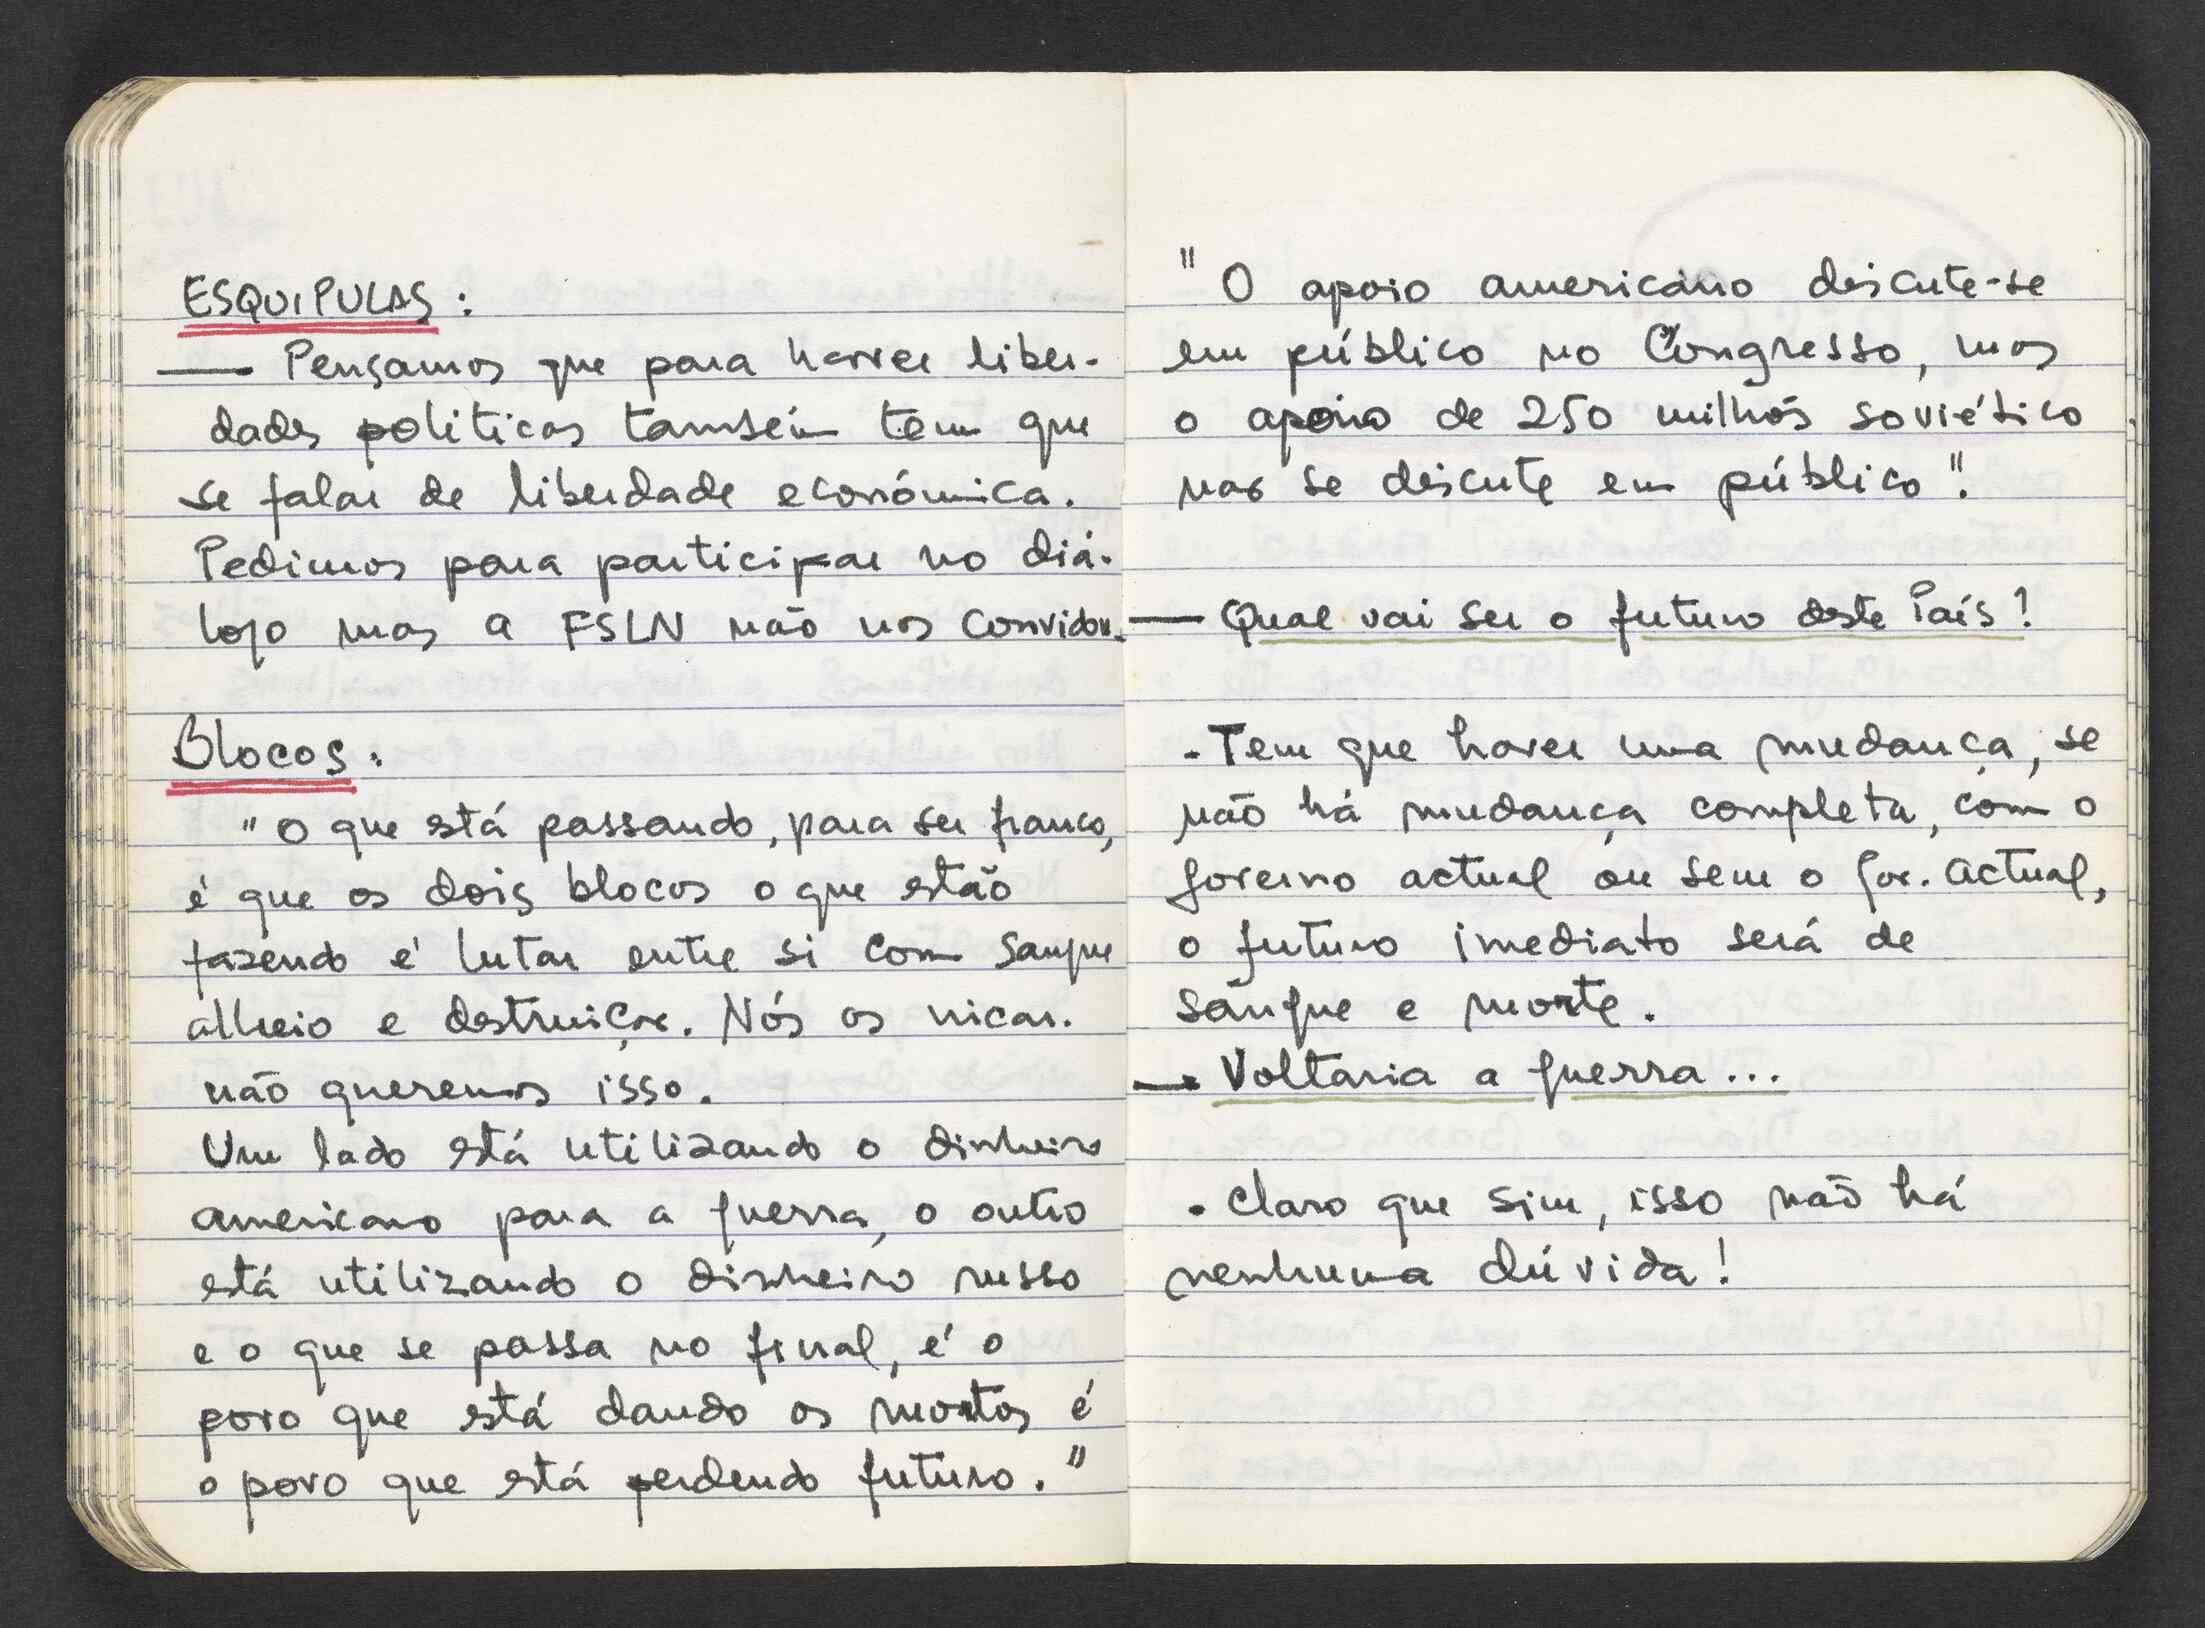 ESQUIPULAS:
— Pensamos que para haver liber-
dades politicas também tem que
se falar de liberdade económica.
Pedimos para participar no diá-
logo mas a FSLN não nos convidou.
Blocos:
"O que está passando, para ser franco,
é que os dois blocos o que estão
fazendo é lutar entre si com sangue
alheio e destruição. Nós os nicar.
não queremos isso.
Um lado está utilizando o dinheiro
americano para a guerra, o outro
está utilizando o dinheiro russo
e o que se passa no final, é o
povo que está dando os mortos é
o povo que está perdendo futuro."
"O apoio americano discute-se
em público no Congresso, mas
o apoio de 250 milhões soviético
não se discute em público".
— Qual vai ser o futuro deste País?
- Tem que haver uma mudança, se
não há mudança completa, com o
governo actual ou sem o gov. actual,
o futuro imediato será de
sangue e morte.
— Voltaria a guerra...
- Claro que sim, isso não há
nenhuma dúvida!